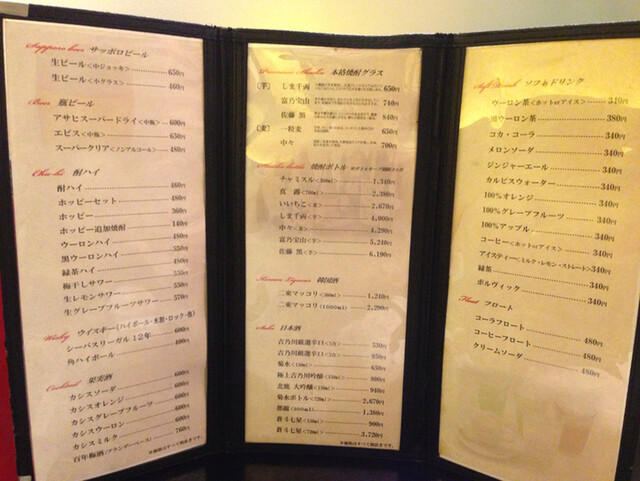 Sapporo beer サッポロビール
生ビール<中ジョッキ> 650円
生ビール<小グラス> 460円
Beer 瓶ビール
アサヒスーパードライ<中瓶> 600円
エビス<中瓶> 650円
スーパークリア<ノンアルコール> 480円
Chu-hi 酎ハイ
酎ハイ 460円
ホッピーセット 480円
ホッピー 360円
ホッピー追加焼酎 140円
ウーロンハイ 480円
黒ウーロンハイ 550円
緑茶ハイ 480円
梅干しサワー 550円
生レモンサワー 550円
生グレープフルーツサワー 570円
Wisky ウイスキー(ハイボール・水割・ロック・他)
シーバスリーガル12年 600円
角ハイボール 400円
Cocktail 果実酒
カシスソーダ 600円
カシスオレンジ 600円
カシスグレープフルーツ 600円
カシスウーロン 600円
カシスミルク 600円
百年梅酒(ブランデーベース) 760円
Premium Shochu 本格焼酎グラス
[芋] しま千両 650円
富乃宝山 740円
佐藤 黒 840円
[麦] 一粒麦 650円
中々 700円
Shochu bottle 焼酎ボトル
チャミスル<360ml> 1,340円
真露<700ml> 2,380円
いいちこ<麦> 2,670円
しま千両<芋> 4,000円
中々<麦> 4,280円
富乃宝山<芋> 5,240円
佐藤 黒<芋> 6,190円
Korean Liqueur 韓国酒
二東マッコリ<360ml> 1,240円
二東マッコリ(1000ml) 2,290円
Sake 日本酒
吉乃川厳選辛口 530円
吉乃川厳選辛口 950円
菊水 650円
極上吉乃川吟醸 800円
北雪 大吟醸 940円
菊水ボトル<720ml> 2,670円
1,380円
蒼斗七星 900円
蒼斗七星<720ml> 3,720円
※価格はすべて税抜きです。
Soft Drink ソフトドリンク
ウーロン茶<ホットorアイス> 340円
黒ウーロン茶 380円
コカ・コーラ 340円
メロンソーダ 340円
ジンジャーエール 340円
カルピスウォーター 340円
100%オレンジ 340円
100%グレープフルーツ 340円
100%アップル 340円
コーヒー<ホットorアイス> 340円
アイスティー<ミルク・レモン・ストレート> 340円
緑茶 340円
ボルヴィック 340円
Float フロート
コーラフロート 480円
コーヒーフロート 480円
クリームソーダ 480円
※価格はすべて税抜きです。